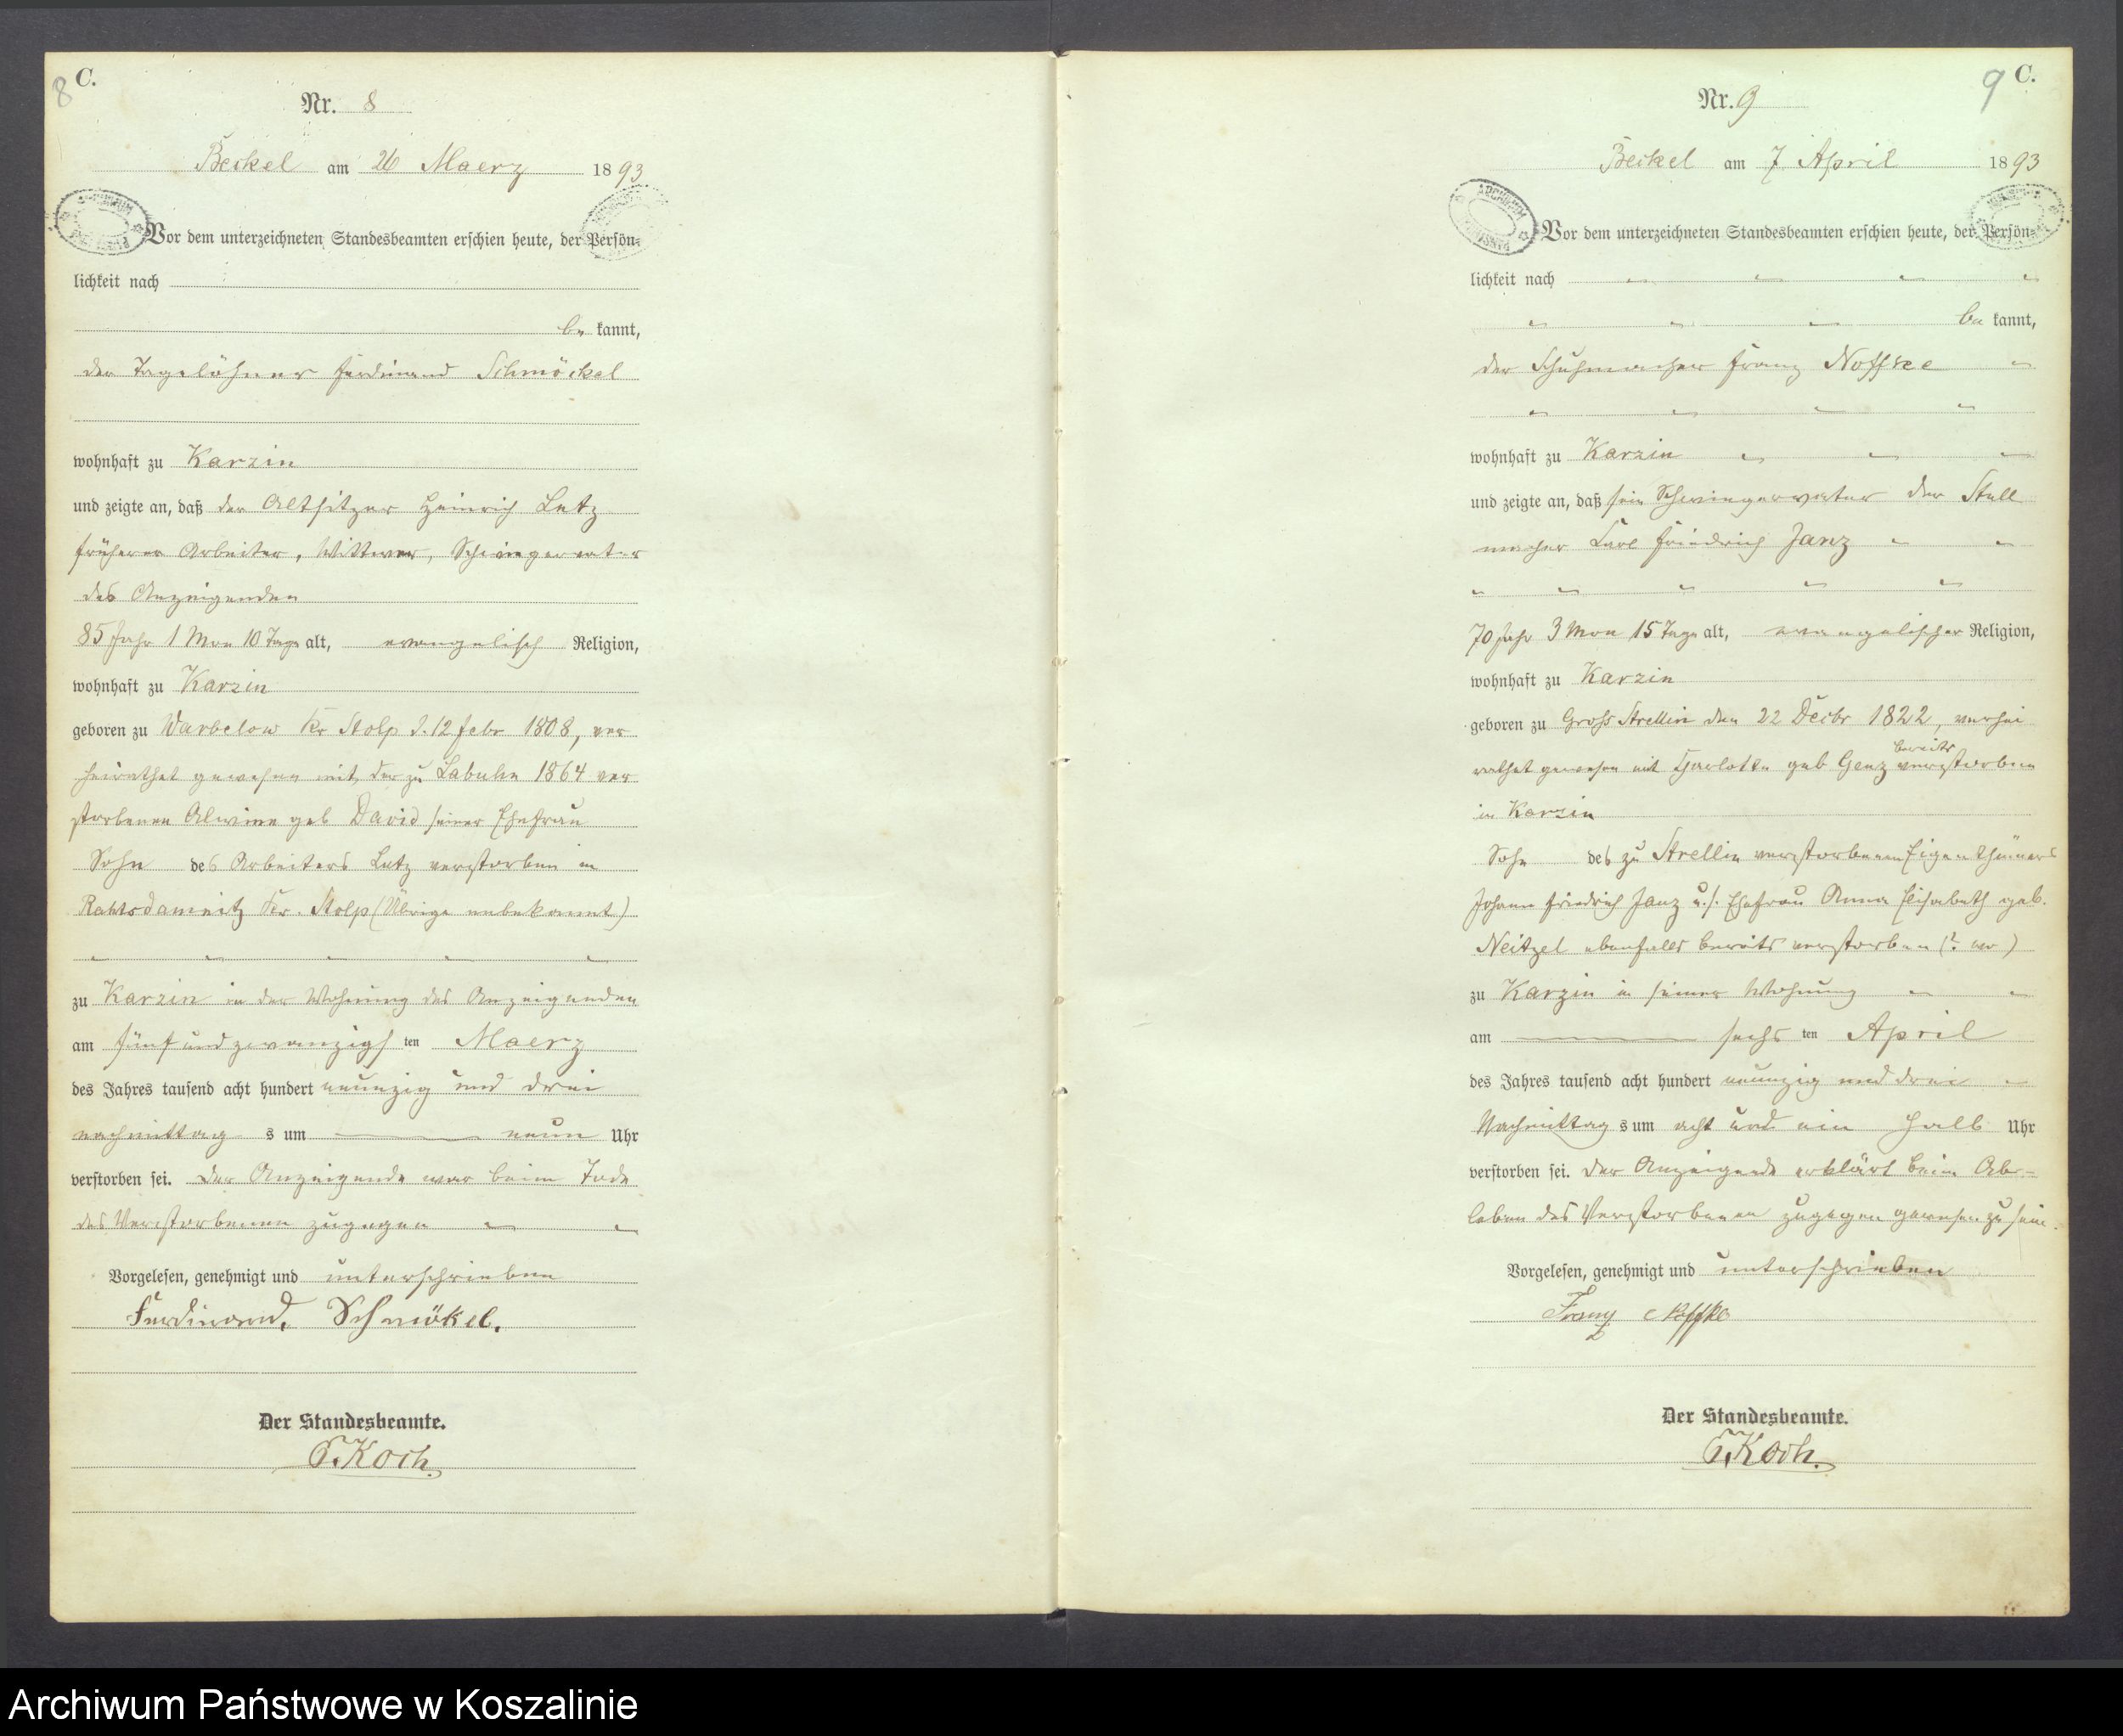 8 C.
Nr. 8
Beckel am 26 Maerz 1893
ARCHIWUM
Vor dem unterzeichneten Standesbeamten erschien heute, der Persön-
lichkeit nach
be kannt,
der Tagelöhner Ferdinand Schmöckel
wohnhaft zu Karzin
und zeigte an, daß der Altsitzer Heinrich Letz
früherer Arbeiter, Wittwer, Schwiegervater
des Anzeigenden
85 Jahr 1 Mon 10 Tage alt, evangelisch Religion,
wohnhaft zu Karzin
geboren zu Warbelow Kr Stolp d. 12 Febr 1808, ver
heirathet gewesen mit der zu Labuhn 1864 ver
storbenen Alwine geb David seiner Ehefrau
Sohn des Arbeiters Letz verstorben in
Rahtsdamnitz Kr. Stolp (Übrige unbekannt)
zu Karzin in der Wohnung des Anzeigenden
am fünfundzwanzigs ten Maerz
des Jahres tausend acht hundert neunzig und drei
nachmittag s um neun Uhr
verstorben sei. Der Anzeigende war beim Tode
des Verstorbenen zugegen
Vorgelesen, genehmigt und unterschrieben
Ferdinand. Schmökel.
Der Standesbeamte.
Koch.
9 C.
Nr. 9
Beckel am 7 April 1893
ARCHIWUM
Vor dem unterzeichneten Standesbeamten erschien heute, der Persön-
lichkeit nach
be kannt,
der Schuhmacher Franz Noffke
wohnhaft zu Karzin
und zeigte an, daß sein Schwiegervater der Stell
macher Carl Friedrich Janz
70 Jahr 3 Mon 15 Tage alt, evangelischer Religion,
wohnhaft zu Karzin
geboren zu Groß Strellin den 22 Decbr 1822, verhei
bereits
rathet gewesen mit Charlotte geb Genz verstorben
in Karzin
Sohn des zu Strellin verstorbenen Eigenthümers
Johann Friedrich Janz u. s. Ehefrau Anna Elisabeth geb.
Neitzel ebenfalls bereits verstorben (? wo)
zu Karzin in seiner Wohnung
am sechs ten April
des Jahres tausend acht hundert neunzig und drei
Nachmittag s um acht und ein halb Uhr
verstorben sei. Der Anzeigende erklärt beim Ab-
leben des Verstorbenen zugegen gewesen zu sein.
Vorgelesen, genehmigt und unterschrieben
Franz Noffke
Der Standesbeamte.
Koch.
Archiwum Państwowe w Koszalinie